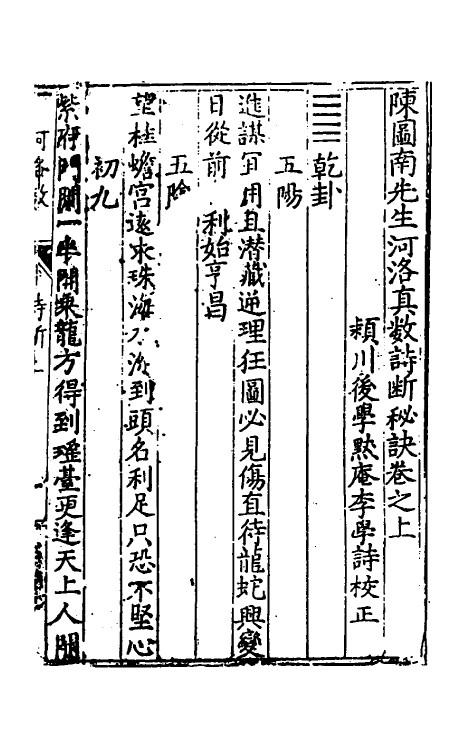 陳圖南先生河洛真数詩断秘訣卷之上
頴川後學默庵李學詩校正
☰☰乾卦
五陽
造謀冝用且潜藏逆理狂圖必見傷直待龍蛇興變
日從前 利始亨昌
五陰
望桂蟾宫遠求珠海 深到頭名利足只恐不堅心
初九
紫府門開一半開乘龍方得到瑶臺更逢天上人閒
河洛数 詩断